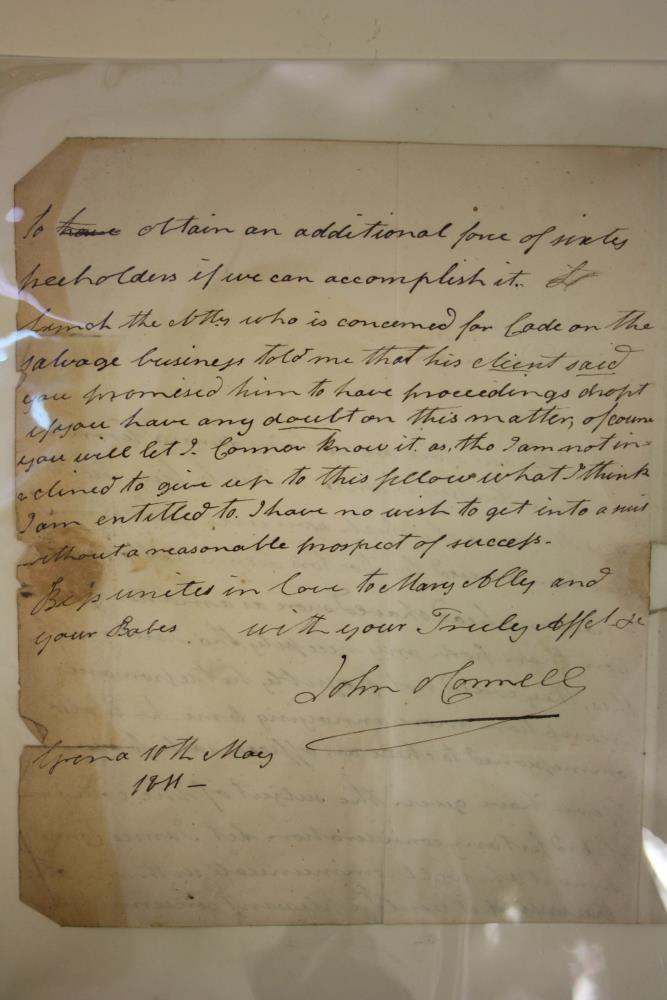 To have obtain an additional force of sixty
freeholders if we can accomplish it.
Lynch the Atty who is concerned for Cade on the
salvage business told me that his client said
you promised him to have proceedings dropt
if you have any doubt on this matter, of course
you will let J. Connor know it. as, tho I am not in=
=clined to give up to this fellow what I think
I am entitled to. I have no wish to get into a suit
without a reasonable prospect of success.
Bess unites in love to Mary Ally and
your Babes with your Truly Affet &c
John O Connell
Grena 10th May
1811 -